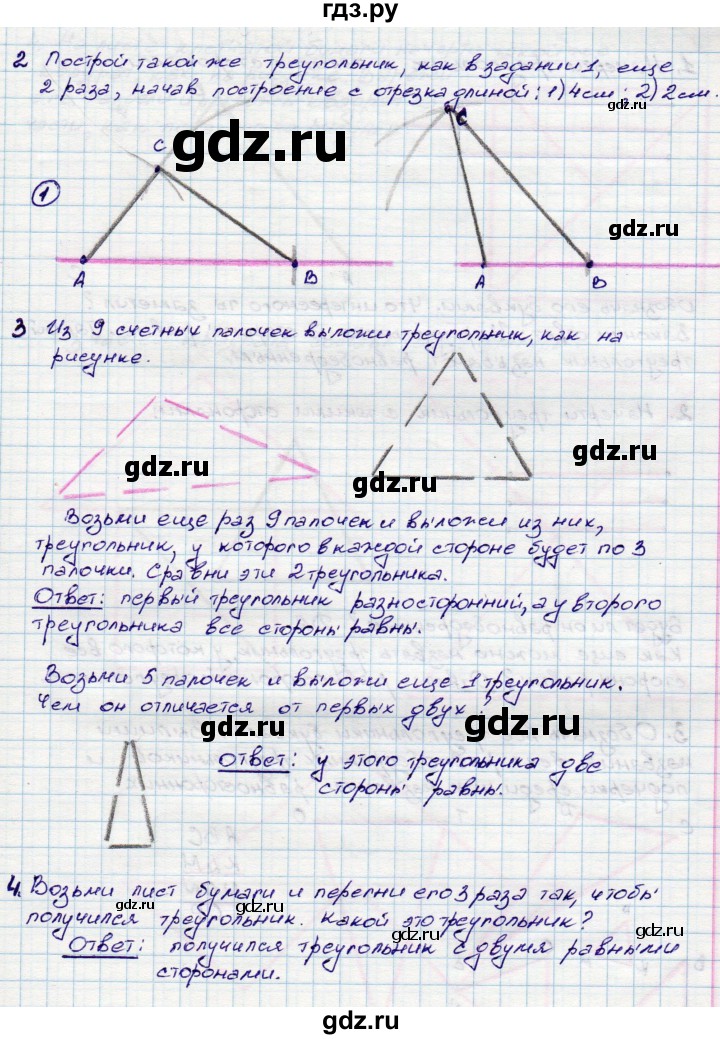 гдз.ру
2 Построй такой же треугольник, как в задании 1, еще
2 раза, начав построение с отрезка длиной: 1) 4 см; 2) 2 см.
gdz.ru
C
C
1
gdz.ru
A
B
A
B
3 Из 9 счетных палочек выложи треугольник, как на
рисунке.
gdz.ru
gdz.ru
Возьми еще раз 9 палочек и выложи из них,
треугольник, у которого в каждой стороне будет по 3
палочки. Сравни эти 2 треугольника.
Ответ: первый треугольник разносторонний, а у второго
треугольника все стороны равны.
gdz.ru
Возьми 5 палочек и выложи еще 1 треугольник.
Чем он отличается от первых двух?
gdz.ru
Ответ: у этого треугольника две
стороны равны.
gdz.ru
4. Возьми лист бумаги и перегни его 3 раза так, чтобы
получился треугольник. Какой это треугольник?
Ответ: получился треугольник с двумя равными
сторонами.
gdz.ru
gdz.ru
gdz.ru